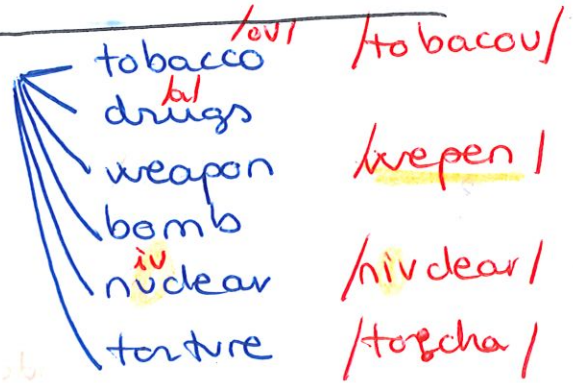 /ou/
tobacco /tobacou/
/a/
drugs
weapon /wepen/
bomb
iu
nuclear /niuclear/
torture /torcha/